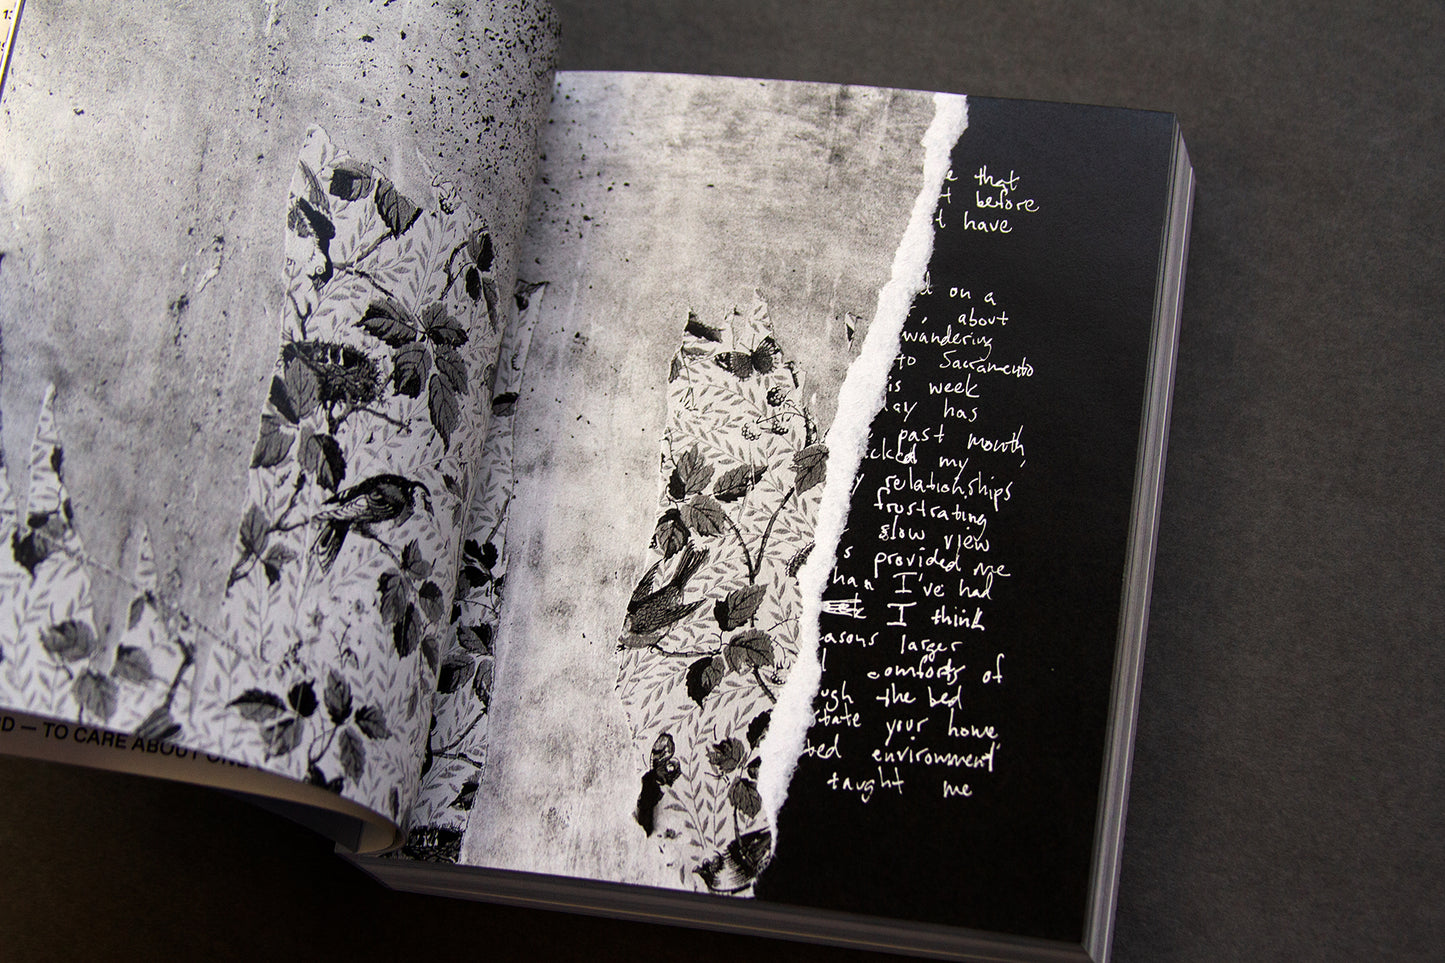 D — TO CARE ABOUT ONE
that
before
have
on a
, about
wandering
to Sacramento
is week
has
past month,
my
relationships
frustrating
slow view
provided me
I've had
I think
larger
comforts of
the bed
your home
environment
taught me